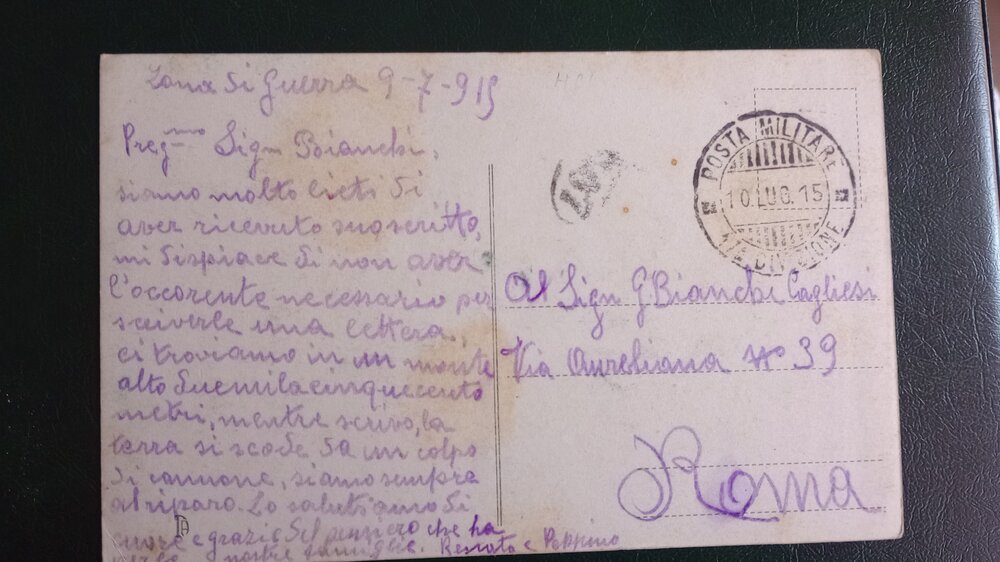 Zona di Guerra 9-7-915
Preg.mo Sign Bianchi,
siamo molto lieti di
aver ricevuto suo scritto,
mi dispiace di non aver
l'occorente necessario per
sciverle una lettera,
ci troviamo in un monte
alto duemilacinquecento
metri, mentre scrivo, la
terra si scode da un colpo
di cannone, siamo sempre
al riparo. Lo salutiamo di
cuore e grazie del pensiero che ha
per le nostre famiglie. Renato e Peppino
POSTA MILITARE
10.LUG.15
DIVISIONE
Al Sign G Bianchi Cagliesi
Via Aureliana No 39
Roma